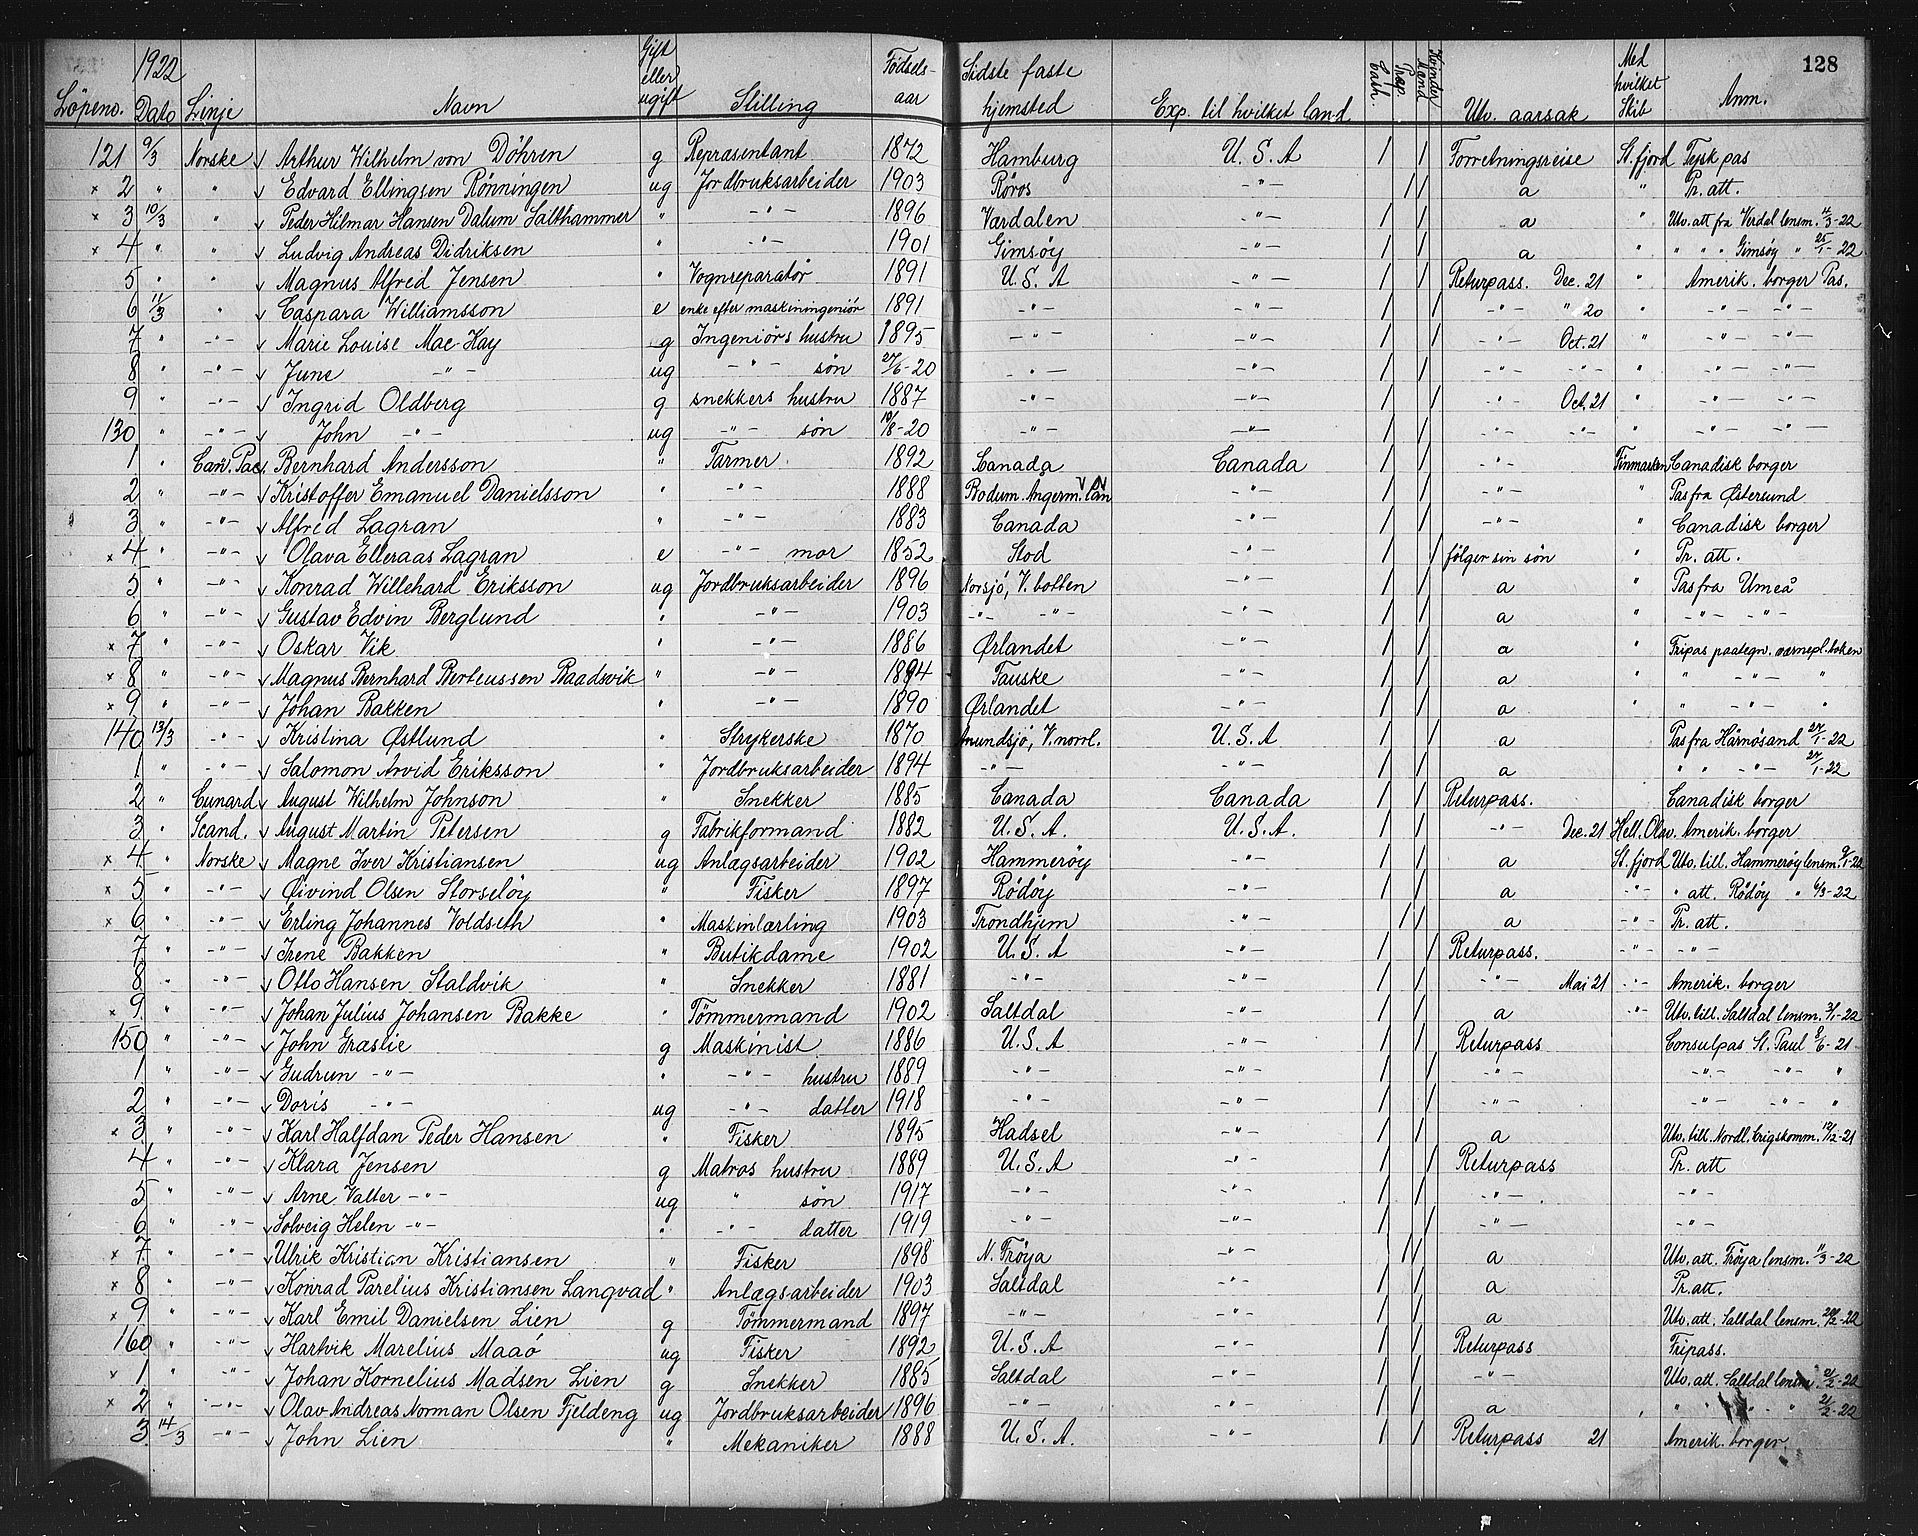 128
1922 Gift eller ugift Fødselsaar Sidste faste hjemsted Kvinder Mand Præp. Cash. Med hvilket Skib
Løpeno. Dato Linje Navn Stilling Exp. til hvilket land Utv. aarsak Anm.
121 9/3 Norske v Arthur Wilhelm von Döhren g Repræsentant 1872 Hamburg U.S.A / / Forretningsreise St. fjord Tysk pas
x 2 " " v Edvard Ellingsen Rønningen ug Jordbruksarbeider 1903 Røros -"- / / a " Pr. att.
x 3 10/3 " v Peder Hilmar Hansen Dalum Salthammer " -"- 1896 Værdalen -"- / / a " Utv. att fra Verdal lensm. 4/3-22
x 4 " " v Ludvig Andreas Didriksen " -"- 1901 Gimsøy -"- / / a " " " " Gimsøy " 25/1-22
5 " " v Magnus Alfred Jensen " Vognreparatør 1891 U.S.A -"- / / Returpass. Dec. 21 " Amerik. borger Pas.
6 11/3 " v Caspara Williamsson e enke efter maskiningeniör 1891 -"- -"- / / -"- " 20 " -"- -"-
7 " -"- v Marie Louise Mac-Kay g Ingeniørs hustru 1895 -"- -"- / / -"- Oct. 21 " -"- -"-
8 " -"- v June -"- ug -"- søn 27/6-20 -"- -"- / / -"- -"- -"- -"-
9 " -"- v Ingrid Oldberg g snekkers hustru 1887 -"- -"- / / -"- Oct. 21 " -"- -"-
130 " -"- v John -"- ug -"- søn 10/8-20 -"- -"- / / -"- -"- " -"- -"-
1 " Can. Pac. v Bernhard Andersson " Farmer 1892 Canada Canada / / -"- Finmarken Canadisk borger
2 " -"- v Kristoffer Emanuel Danielsson " -"- 1888 Bodum. Angerm. län -"- / / -"- " Pas fra Østersund
3 " -"- v Alfred Lagran " -"- 1883 Canada -"- / / -"- " Canadisk borger
x 4 " -"- v Olava Elleraas Lagran e -"- mor 1852 Stod -"- / / følger sin søn " Pr. att.
5 " -"- v Konrad Willehard Eriksson ug Jordbruksarbeider 1896 Norsjö, V. botten -"- / / a " Pas fra Umeå
6 " -"- v Gustav Edvin Berglund " -"- 1903 -"- -"- / / a " -"- -"-
x 7 " -"- v Oskar Vik " -"- 1886 Ørlandet -"- / / a " Fripas paategn. værnepl. boken
x 8 " -"- v Magnus Bernhard Berteussen Baadsvik " -"- 1894 Fauske -"- / / a " " -"- "
x 9 " -"- v Johan Bakken " -"- 1890 Ørlandet -"- / / a " " -"- "
140 13/3 -"- v Kristina Østlund " Strykerske 1870 Anundsjö, V. norrl. U.S.A / / a Pas fra Härnösand 27/1-22
1 " -"- v Salomon Arvid Eriksson " Jordbruksarbeider 1894 -"- -"- / / a " " -"- 27/1-22
2 " Cunard v August Wilhelm Johnson " Snekker 1885 Canada Canada / / Returpass. Canadisk borger
3 " Scand. v August Martin Petersen g Fabrikformand 1882 U.S.A. U.S.A. / / -"- Dec. 21 Hell. Olav. Amerik. borger
x 4 " Norske v Magne Iver Kristiansen ug Anlægsarbeider 1902 Hammerøy -"- / / a St. fjord Utv. till. Hammerøy lensm. 9/1-22
x 5 " -"- v Øivind Olsen Storseløy " Fisker 1897 Rødøy -"- / / a -"- " att. Rødøy " 6/3-22
x 6 " -"- v Erling Johannes Voldseth " Maskinlærling 1903 Trondhjem -"- / / a -"- Pr. att.
7 " -"- v Irene Bakken " Butikdame 1902 U.S.A -"- / / Returpass. -"- -"-
8 " -"- v Otto Hansen Staldvik " Snekker 1881 -"- -"- / / -"- Mai 21 -"- Amerik. borger
x 9 " -"- v Johan Julius Johansen Bakke " Tømmermand 1902 Saltdal -"- / / a -"- Utv. till. Saltdal lensm. 3/1-22
150 " -"- v John Graslie g Maskinist 1886 U.S.A -"- / / Returpass Consulpas St. Paul 8/6-21
1 " -"- v Gudrun -"- " -"- hustru 1889 -"- -"- / / -"- -"- -"- "
2 " -"- v Doris -"- ug -"- datter 1918 -"- -"- / / -"- -"- -"- "
x 3 " -"- v Karl Halfdan Peder Hansen " Fisker 1895 Hadsel -"- / / a Utv. till. Nordl. krigskomm. 12/12-21
4 " -"- v Klara Jensen g Matros hustru 1889 U.S.A -"- / / Returpass Pr. att
5 " -"- v Arne Valter -"- ug " søn 1917 -"- -"- / / -"- -"-
6 " -"- v Solveig Helen -"- " -"- datter 1919 -"- -"- / / -"- -"-
x 7 " -"- v Ulrik Kristian Kristiansen " Fisker 1898 N. Frøya -"- / / a Utv. att. Frøya lensm. 11/3-22
x 8 " -"- v Konrad Parelius Kristiansen Langvad " Anlægsarbeider 1903 Saltdal -"- / / a Pr. att.
x 9 " -"- v Karl Emil Danielsen Lien g Tømmermand 1897 -"- -"- / / a Utv. att. Saltdal lensm. 20/2-22
160 " -"- v Hartvik Marelius Maaø ug Fisker 1892 U.S.A -"- / / Returpass Fripass.
x 1 " -"- v Johan Kornelius Madsen Lien g Snekker 1885 Saltdal -"- / / -"- Utv. att. Saltdal lensm. 21/2-22
x 2 " -"- v Olav Andreas Norman Olsen Fjeldeng ug Jordbruksarbeider 1896 -"- -"- / / a " " -"- " 21/2-22
3 14/3 -"- v John Lien " Mekaniker 1888 U.S.A. -"- / / Returpass 21 Amerik. borger.